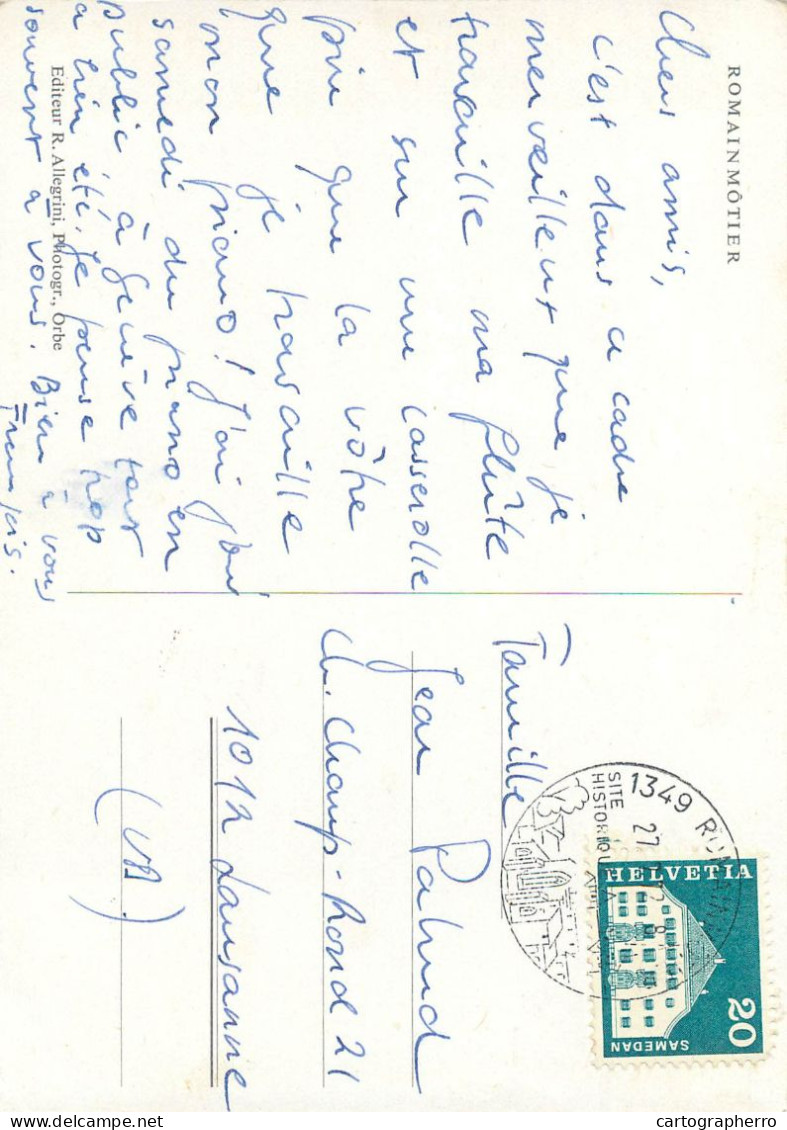 ROMAINMÔTIER
Chers amis,
c'est dans ce cadre
merveilleux que je
travaille ma flûte
et sur une casserolle
pire que la vôtre
que je travaille
mon piano! J'ai joué
samedi du piano en
public à Genève tout
a bien été. Je pense trop
souvent à vous. Bien à vous
François.
Editeur R. Allegrini, Photogr., Orbe
Famille
Jean Pahud
Ch. Champ-Rond 21
1012 Lausanne
(VD)
1349
SITE
27
HELVETIA
20
SAMEDAN
cartographerro